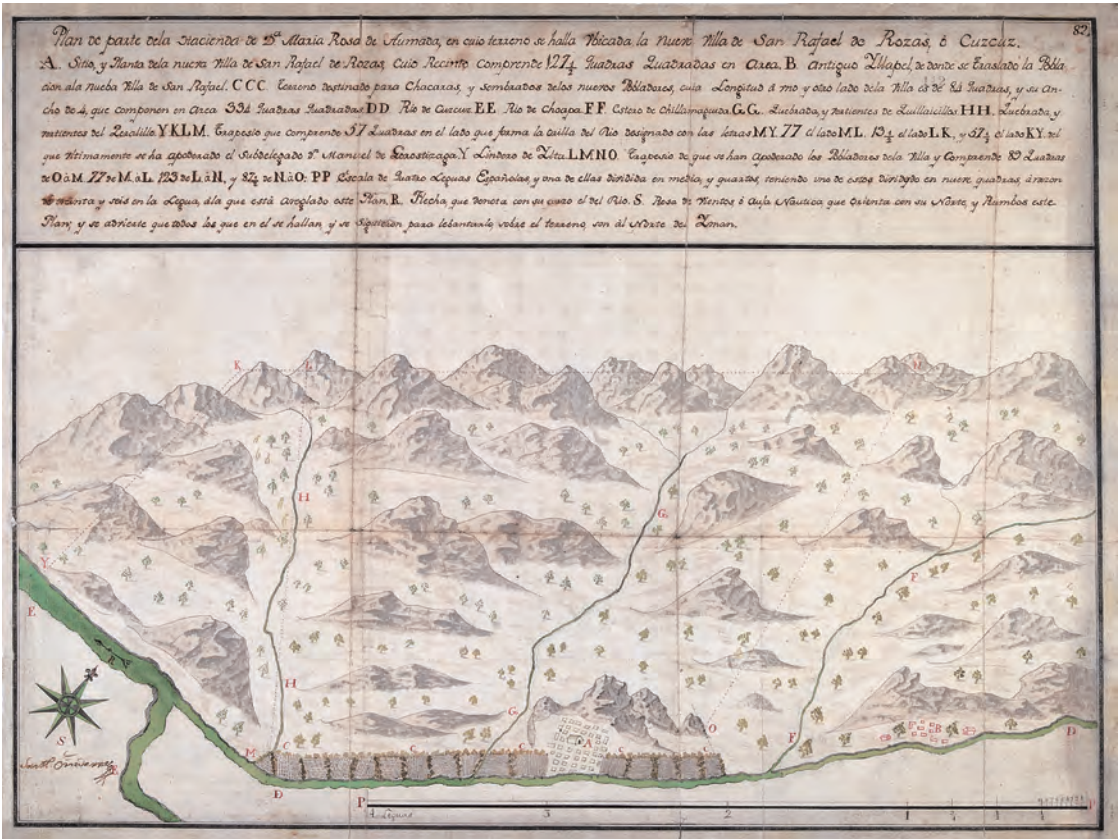 82
Plan de parte dela Hacienda de Dª Maria Rosa de Aumada, en cuio terreno se halla Vbicada la nueva Villa de San Rafael de Rozas, ó Cuzcuz.
A. Sitio, y Planta dela nueva Villa de San Rafael de Rozas, Cuio Recinto Comprende 127¼ Quadras Quadradas en Area. B. Antiguo Yllapel, de donde se traslado la Pobla
cion ala nueba Villa de San Rafael. CCC. Terreno destinado para Chacaras, y sembrados delos nuevos Pobladores, cuia Longitud á vno y otro lado dela Villa es de 84 Quadras, y su An
cho de 4, que componen en Area 334 Quadras Quadradas DD Rio de Cuzcuz. EE Rio de choapa. FF Estero de Chillamaguida. G.G. Quebrada, y vertientes de Quillaicillas HH. Quebrada, y
vertientes del Peralillo. YKLM. Trapesio que comprende 57 Quadras en el lado que forma la orilla del Rio designado con las letras MY. 77 el lado ML. 15½ el lado LK, y 57½ el lado KY. del
que vltimamente se ha apoderado el Subdelegado Dⁿ Manuel de Y Lindero de LMNO. Trapesio de que se han Apoderado los Pobladores dela Villa y Comprende 89 Quadras
de O à M. 77 de M. à L. 123 de L. à N, y 82½ de N. à O: PP Escala de Quatro Leguas Españolas, y vna de ellas dividida en media, y quartos, teniendo vno de estos dividido en nueve quadras, á razon
de treinta y seis en la Legua, á la que está Arreglado este Plan. R. Flecha, que denota con su curso el del Rio. S. Rosa de Vientos ó Auja Nautica que Orienta con su Norte, y Rumbos este
Plan, y se advierte que todos los que en el se hallan, y se siguieron para lebantarlo sobre el terreno, son al Norte del Yman.
K
L
N
H
G
F
Y
E
R
H
G
O
S
M
C
C
C
A
C
C
F
B
D
E
D
P
4 Leguas
3
2
1
P